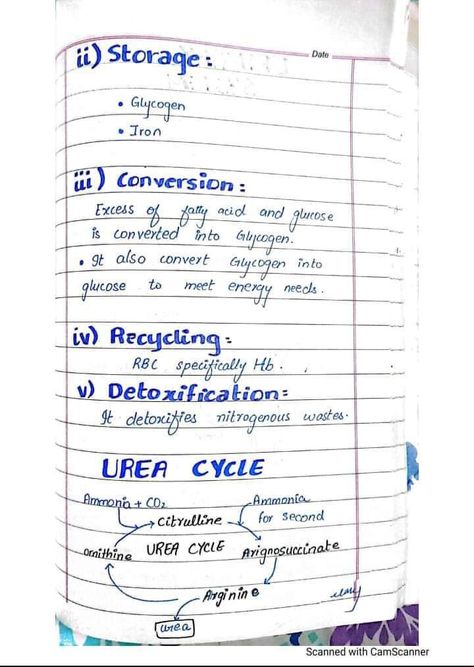 Date
ii) Storage:
• Glycogen
• Iron
iii) Conversion:
Excess of fatty acid and glucose
is converted into Glycogen.
• It also convert Glycogen into
glucose to meet energy needs.
iv) Recycling:
RBC specifically Hb.
v) Detoxification:
It detoxifies nitrogenous wastes.
UREA CYCLE
Ammonia + CO2
Ammonia
for second
citrulline
ornithine
UREA CYCLE
Arignosuccinate
Arginine
urea
Scanned with CamScanner